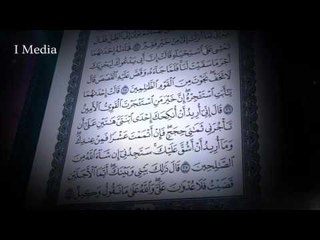 I Media
تَمْشِى عَلَى ٱسْتِحْيَآءٍ قَالَتْ إِنَّ أَبِى يَدْعُوكَ لِيَجْزِيَكَ
أَجْرَ مَا سَقَيْتَ لَنَا فَلَمَّا جَآءَهُۥ وَقَصَّ عَلَيْهِ ٱلْقَصَصَ قَالَ
لَا تَخَفْ نَجَوْتَ مِنَ ٱلْقَوْمِ ٱلظَّٰلِمِينَ ٢٥ قَالَتْ إِحْدَىٰهُمَا
يَٰٓأَبَتِ ٱسْتَـْٔجِرْهُ إِنَّ خَيْرَ مَنِ ٱسْتَـْٔجَرْتَ ٱلْقَوِىُّ ٱلْأَمِينُ
٢٦ قَالَ إِنِّىٓ أُرِيدُ أَنْ أُنكِحَكَ إِحْدَى ٱبْنَتَىَّ هَٰتَيْنِ عَلَىٰٓ أَن
تَأْجُرَنِى ثَمَٰنِىَ حِجَجٍ فَإِنْ أَتْمَمْتَ عَشْرًا فَمِنْ عِندِكَ
وَمَآ أُرِيدُ أَنْ أَشُقَّ عَلَيْكَ سَتَجِدُنِىٓ إِن شَآءَ ٱللَّهُ مِنَ
ٱلصَّٰلِحِينَ ٢٧ قَالَ ذَٰلِكَ بَيْنِى وَبَيْنَكَ أَيَّمَا ٱلْأَجَلَيْنِ
قَضَيْتُ فَلَا عُدْوَٰنَ عَلَىَّ وَٱللَّهُ عَلَىٰ مَا نَقُولُ وَكِيلٌ ٢٨